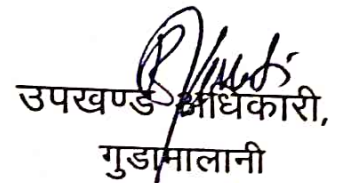 उपखण्ड अधिकारी,
गुडामालानी